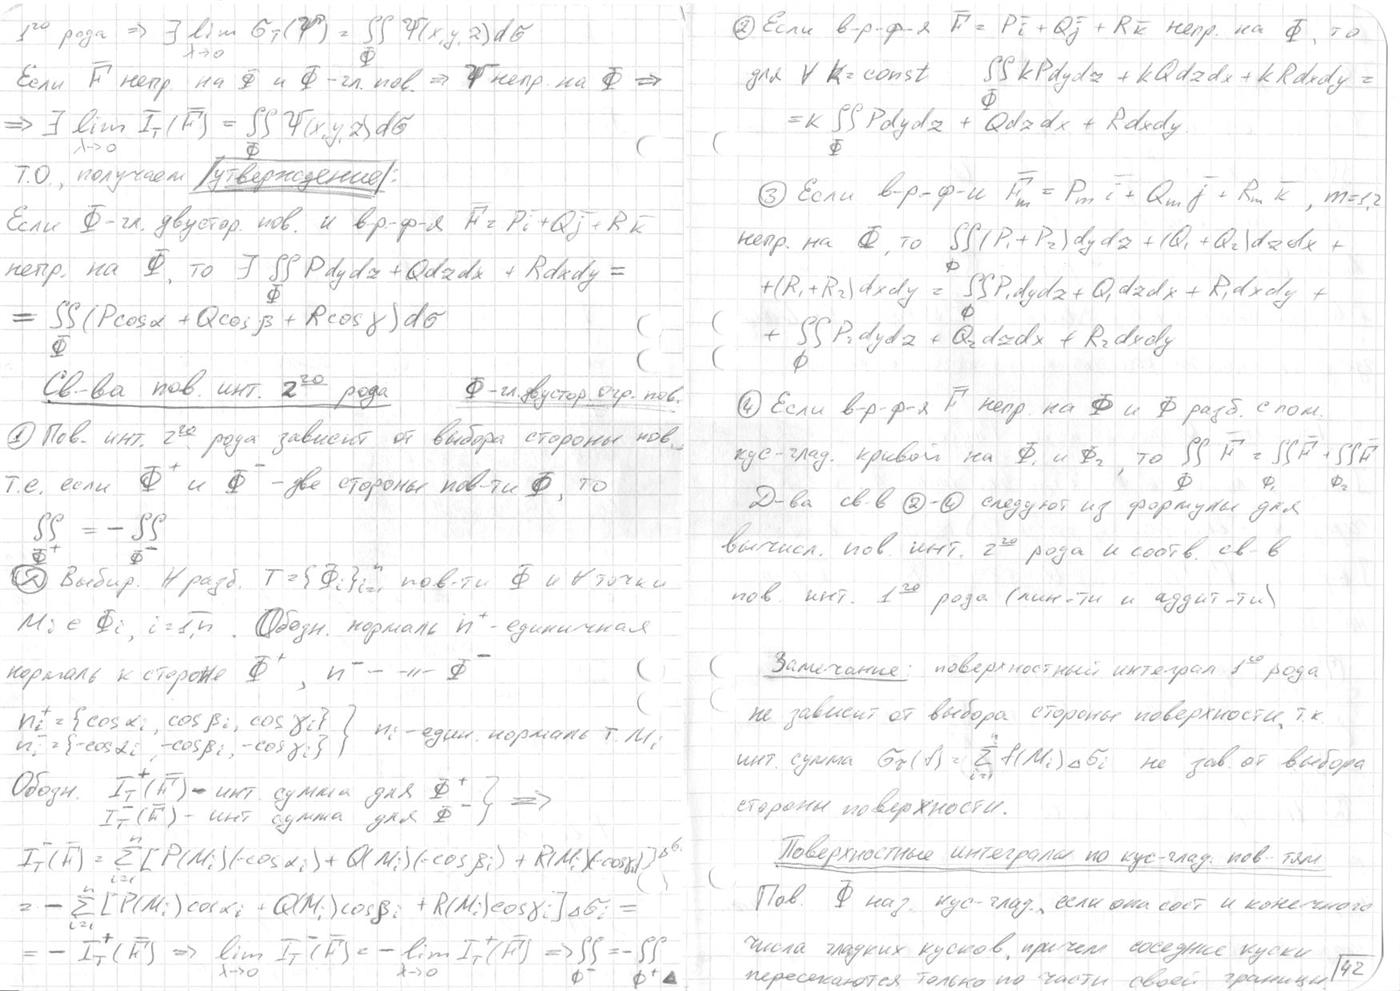 1го рода => ∃ lim σ_T(Ψ) = ∬ Ψ(x,y,z)dσ
λ→0 Φ
Если F̅ непр. на Φ и Φ-гл. пов. => Ψ непр. на Φ =>
=> ∃ lim I_T(F̅) = ∬ Ψ(x,y,z)dσ
λ→0 Φ
Т.О., получаем /утверждение/:
Если Φ-гл. двустор. пов. и в-р-ф-я F̅ = Pi̅+Qj̅+Rk̅
непр. на Φ, то ∃ ∬ Pdydz+Qdzdx+Rdxdy =
Φ
= ∬ (Pcosα + Qcosβ + Rcosγ)dσ
Φ
Св-ва пов. инт. 2го рода Φ-гл. двустор. огр. пов.
① Пов. инт. 2го рода зависит от выбора стороны пов.,
т.е. если Φ⁺ и Φ⁻ - две стороны пов-ти Φ, то
∬ = - ∬
Φ⁺ Φ⁻
Выбир. ∀ разб. T={Φi}ⁿi=1 пов-ти Φ и ∀ точки
Mi ∈ Φi, i=1,n. Обозн. нормаль n⁺-единичная
нормаль к стороне Φ⁺, n⁻ - -〃- Φ⁻
ni⁺={cosαi, cosβi, cosγi}
ni⁻={-cosαi, -cosβi, -cosγi} } ni-един. нормаль т. Mi
Обозн. I_T⁺(F̅) - инт. сумма для Φ⁺
I_T⁻(F̅) - инт сумма для Φ⁻ } =>
I_T⁻(F̅) = Σⁿi=1 [P(Mi)(-cosαi) + Q(Mi)(-cosβi) + R(Mi)(-cosγi)]Δσi
= - Σⁿi=1 [P(Mi)cosαi + Q(Mi)cosβi + R(Mi)cosγi]Δσi =
= - I_T⁺(F̅) => lim I_T⁻(F̅) = - lim I_T⁺(F̅) => ∬ = -∬
λ→0 λ→0 Φ⁻ Φ⁺ ▲
② Если в-р-ф-я F̅ = Pi̅+Qj̅+Rk̅ непр. на Φ, то
для ∀ k=const ∬ kPdydz + kQdzdx + kRdxdy =
Φ
= k ∬ Pdydz + Qdzdx + Rdxdy.
Φ
③ Если в-р-ф-и F̅m = Pm i̅ + Qm j̅ + Rm k̅, m=1,2
непр. на Φ, то ∬ (P₁+P₂)dydz + (Q₁+Q₂)dzdx +
Φ
+(R₁+R₂)dxdy = ∬ P₁dydz + Q₁dzdx + R₁dxdy +
Φ
+ ∬ P₂dydz + Q₂dzdx + R₂dxdy
Φ
④ Если в-р-ф-я F̅ непр. на Φ и Φ разб. с пом.
кус-глад. кривой на Φ₁ и Φ₂, то ∬ F̅ = ∬ F̅ + ∬ F̅
Φ Φ₁ Φ₂
Д-ва св-в ②-④ следуют из формулы для
вычисл. пов. инт. 2го рода и соотв. св-в
пов. инт. 1го рода (лин-ти и аддит-ти)
Замечание: поверхностный интеграл 1го рода
не зависит от выбора стороны поверхности, т.к.
инт. сумма σ_T(f) = Σⁿi=1 f(Mi)Δσi не зав. от выбора
стороны поверхности.
Поверхностные интегралы по кус-глад. пов-тям
Пов. Φ наз. кус-глад., если она сост и конечного
числа гладких кусков, причем соседние куски
пересекаются только по части своей границы
42